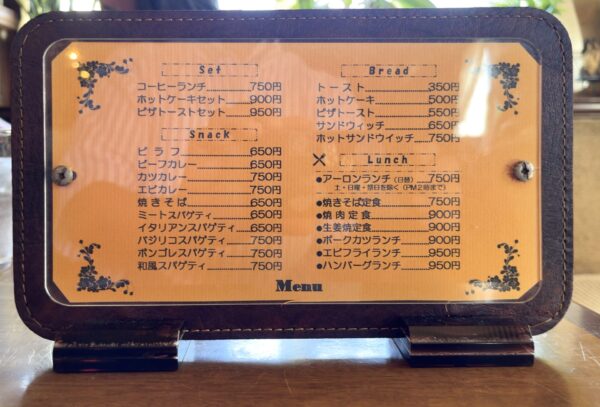 Set
コーヒーランチ 750円
ホットケーキセット 900円
ピザトーストセット 950円
Snack
ピラフ 650円
ビーフカレー 650円
カツカレー 750円
エビカレー 750円
焼きそば 650円
ミートスパゲティ 650円
イタリアンスパゲティ 650円
バジリコスパゲティ 750円
ボンゴレスパゲティ 750円
和風スパゲティ 750円
Bread
トースト 350円
ホットケーキ 500円
ピザトースト 550円
サンドウィッチ 650円
ホットサンドウイッチ 750円
Lunch
●アーロンランチ(日替) 750円
土・日曜・祭日を除く(PM2時まで)
●焼きそば定食 750円
●焼肉定食 900円
●生姜焼定食 900円
●ポークカツランチ 900円
●エビフライランチ 950円
●ハンバーグランチ 950円
Menu